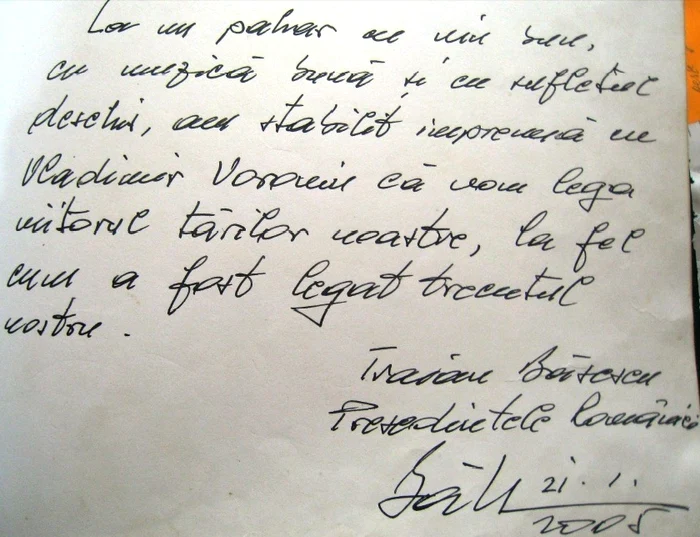 La un pahar cu vin bun,
cu muzică bună și cu sufletul
deschis, am stabilit împreună cu
Vladimir Voronin că vom lega
viitorul țărilor noastre, la fel
cum a fost legat trecutul
nostru.
Traian Băsescu
Președintele României
21.1.
2005